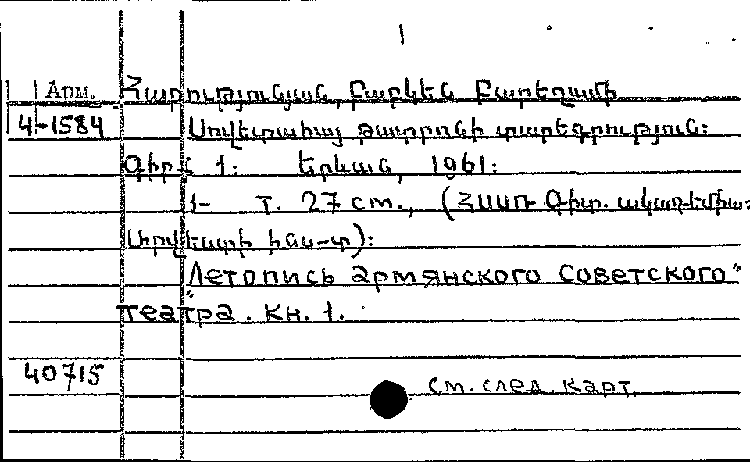 Арм. Հարությունյան, Բաբկեն Բարեղամի
4-1584 Սովետահայ թատրոնի տարեգրություն։
Գիրք 1։ Երևան, 1961։
1- т. 27 см., (ՀՍՍՌ Գիտ. ակադեմիա։
Արվեստի ինս-տ)։
"Летопись армянского советского"
театра. Кн. 1.
40715
см. след. карт.